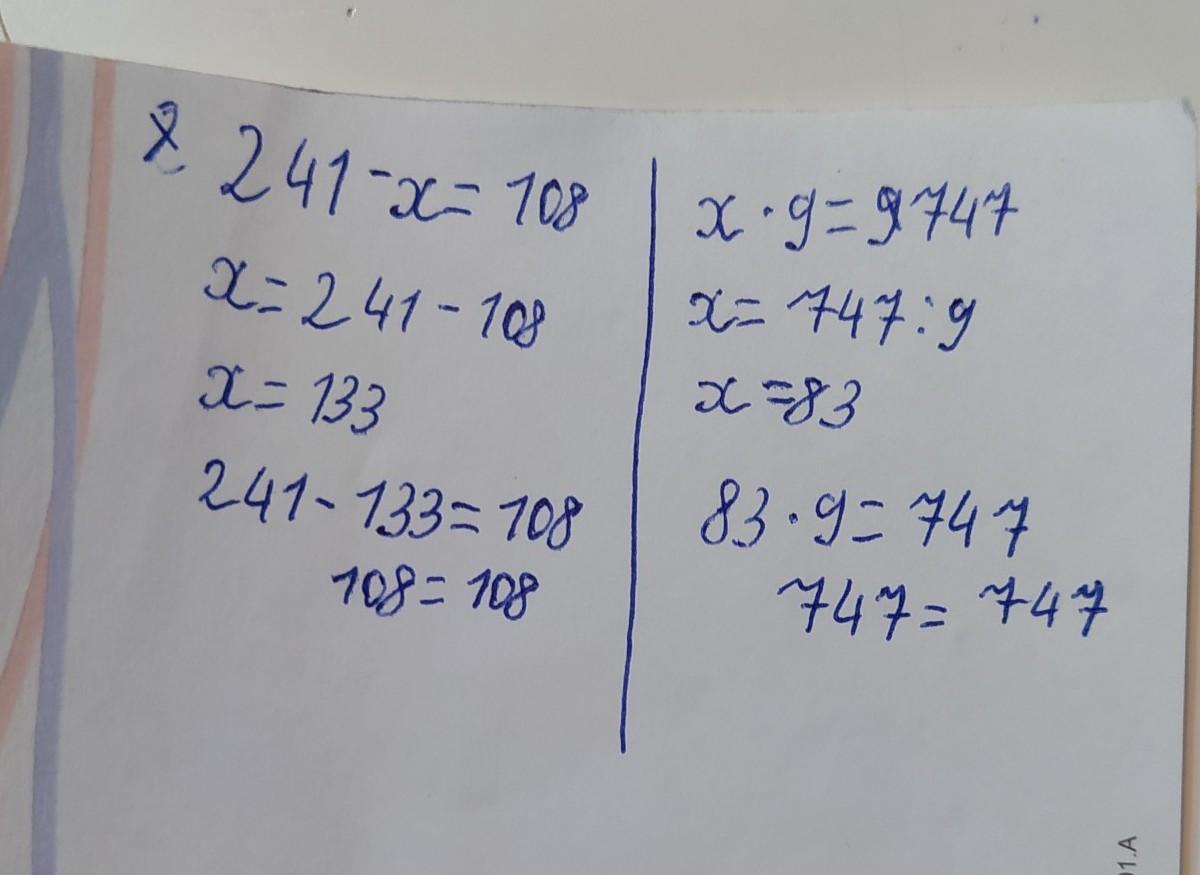 241 - x = 108
x = 241 - 108
x = 133
241 - 133 = 108
108 = 108
x · 9 = 747
x = 747 : 9
x = 83
83 · 9 = 747
747 = 747
01.A